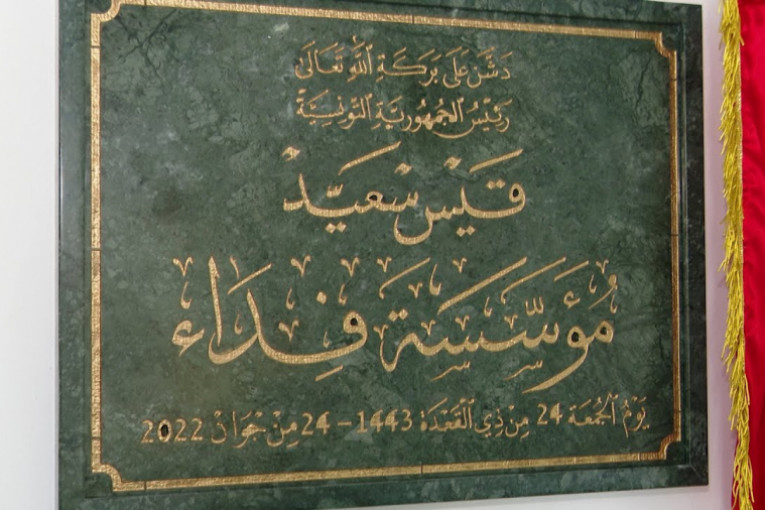 دَشَّنَ عَلَى بَرَكَةِ اللَّهِ تَعَالَى
رَئِيسُ الجُمْهُورِيَّةِ التُّونِسِيَّةِ
قَيْس سْعَيِّدْ
مُؤَسَّسَةَ فِدَاء
يَوْمُ الجُمُعَة 24 مِن ذِي القَعْدَة 1443 – 24 مِنْ جْوَانْ 2022